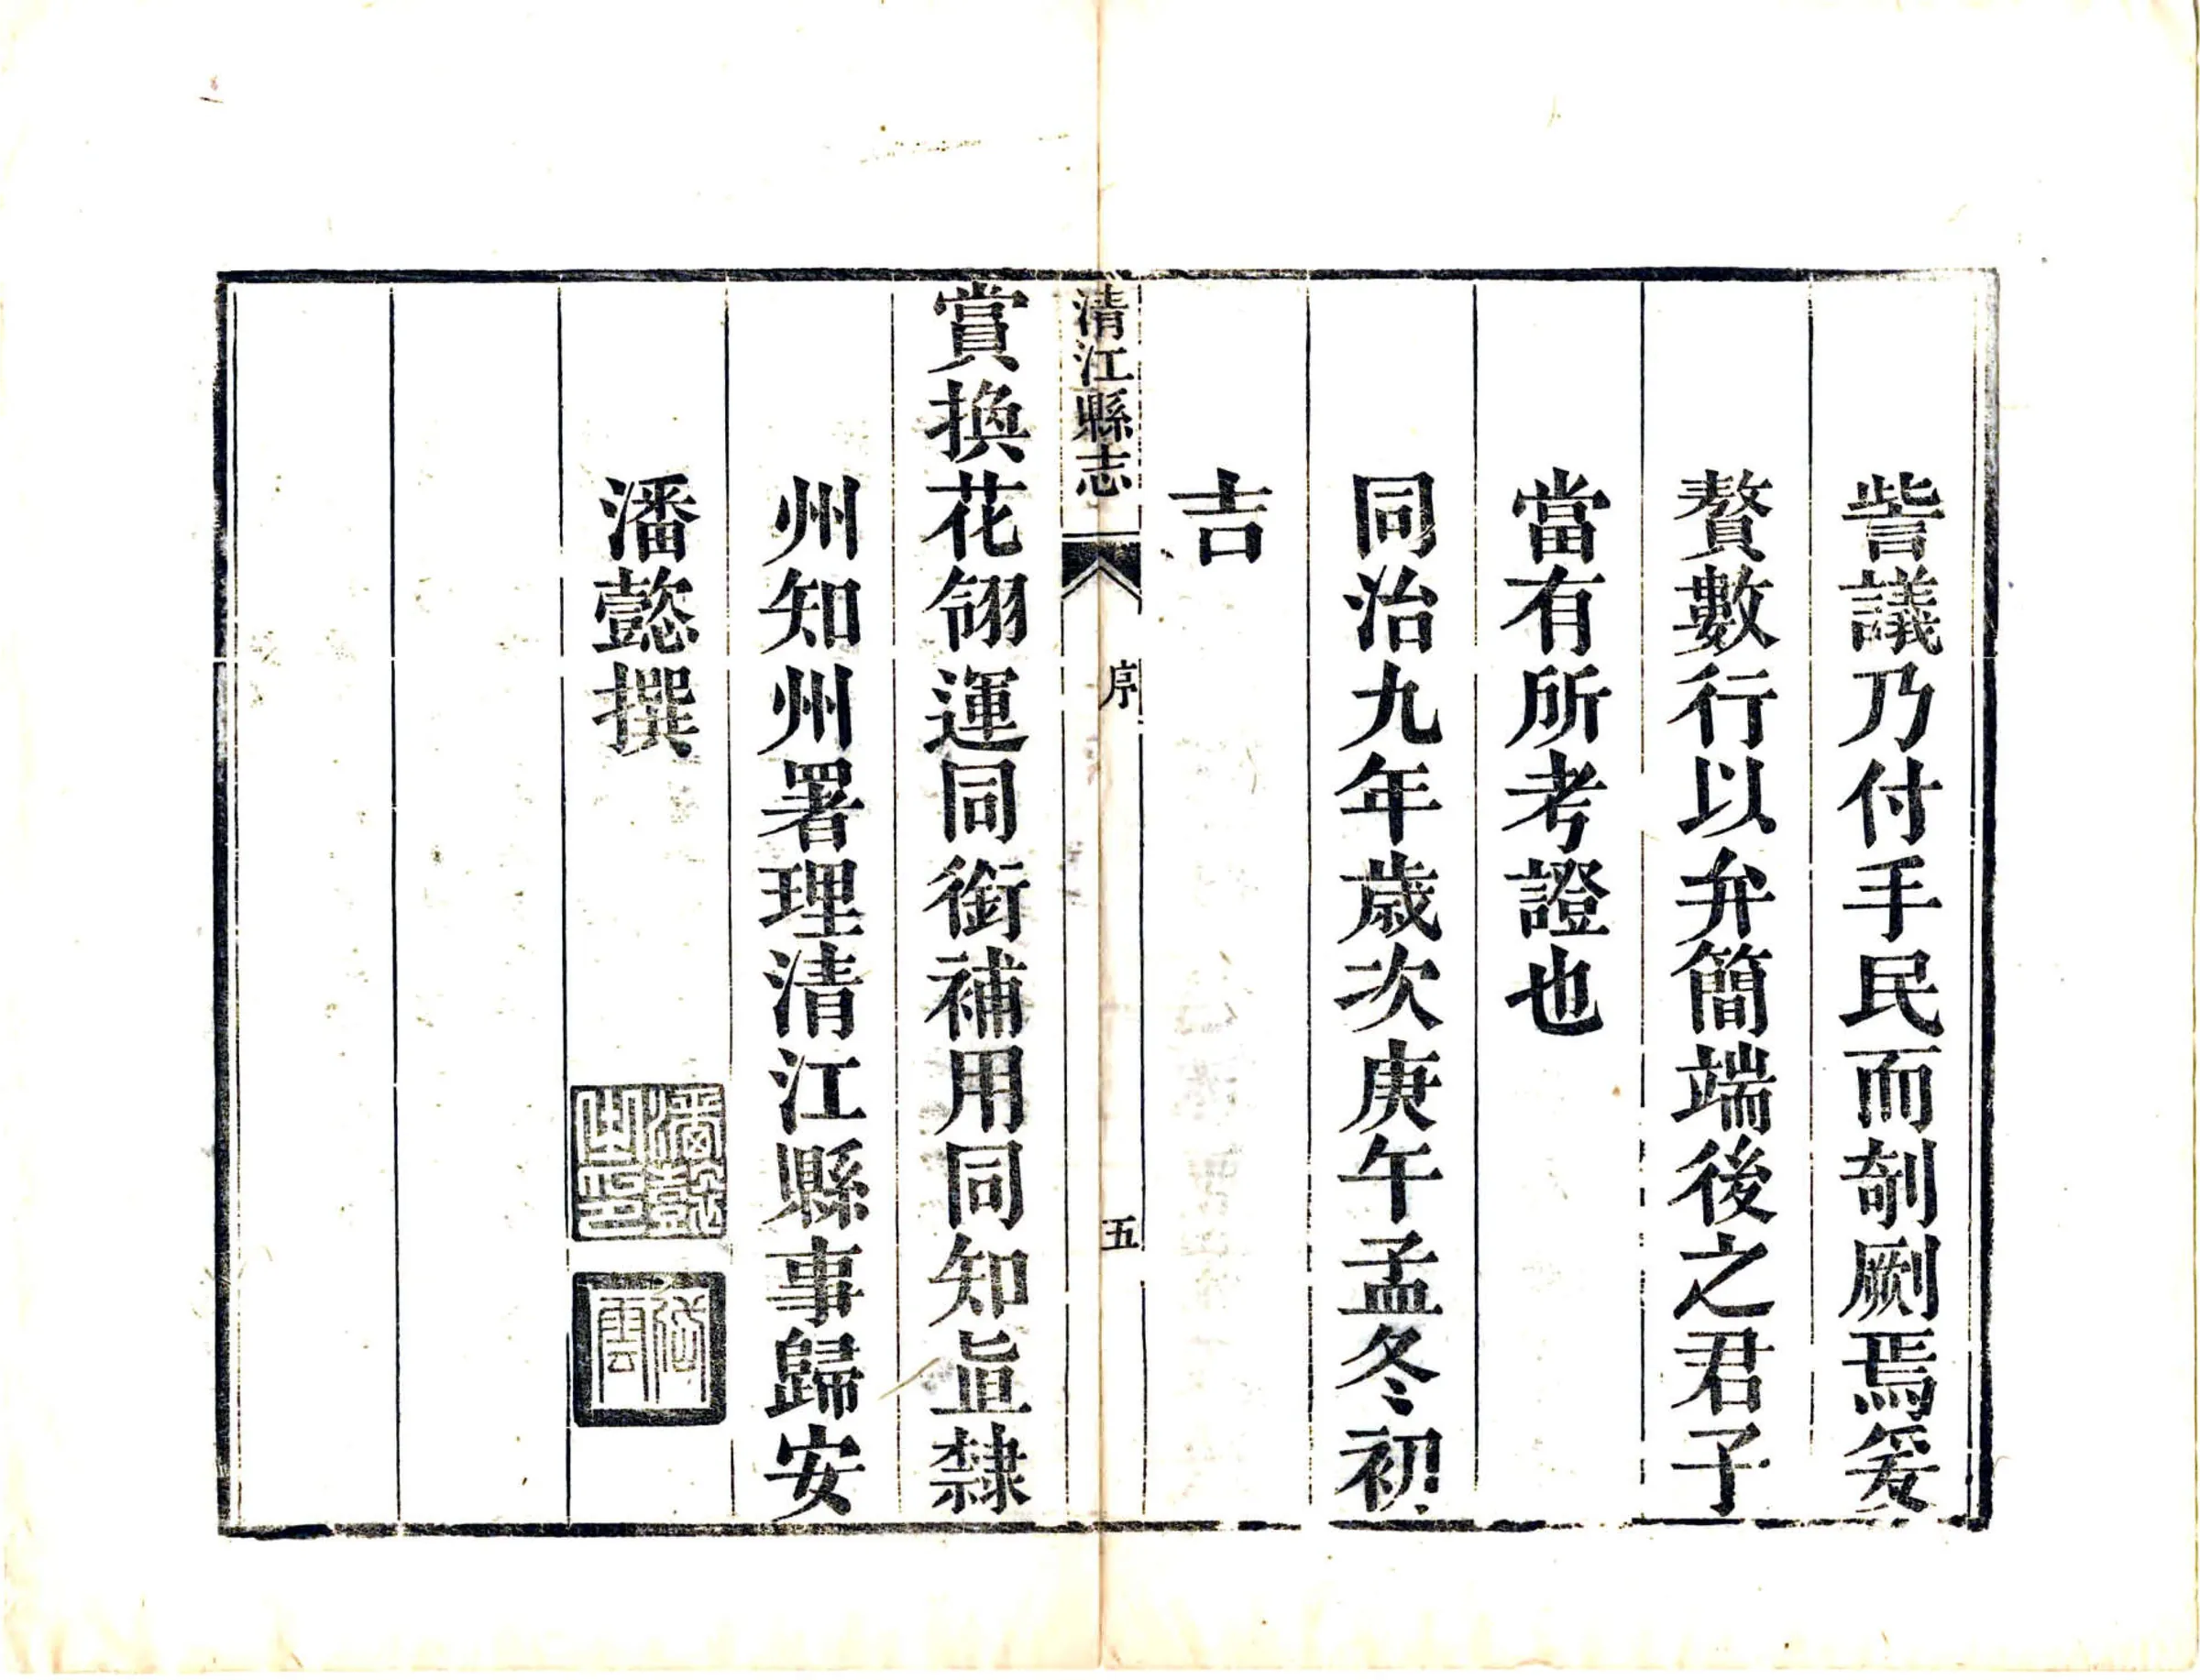 訾議乃付手民而剞劂焉爰
贅數行以弁簡端後之君子
當有所考證也
同治九年歲次庚午孟冬初
吉
清江縣志
序
五
賞換花翎運同銜補用同知直隸
州知州署理清江縣事歸安
潘懿撰
潘懿
之印